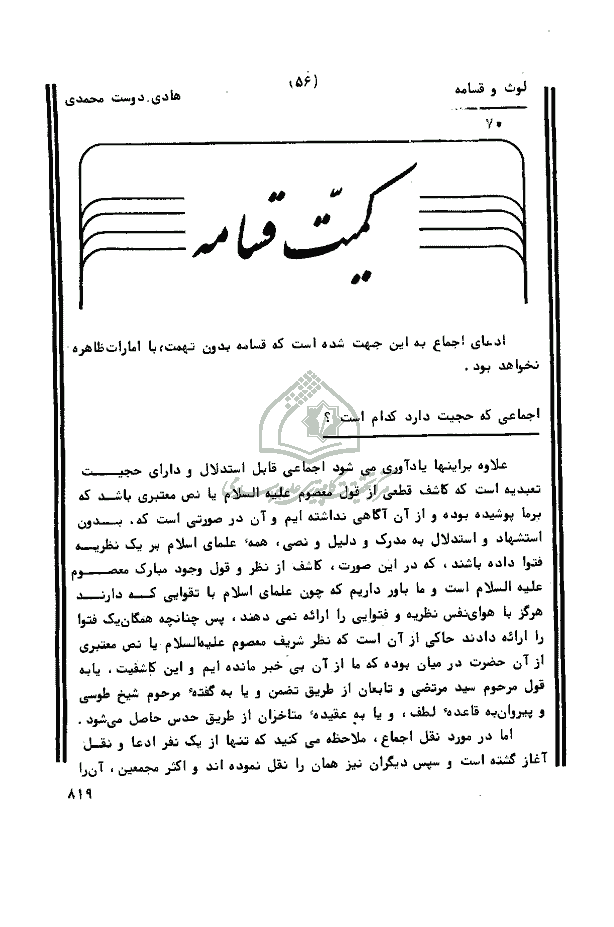 لوث و قسامه
(۵۶)
هادی دوست محمدی
۷۰
کمیّت قسامه
ادعای اجماع به این جهت شده است که قسامه بدون تهمت، با امارات ظاهره
نخواهد بود .
اجماعی که حجیت دارد کدام است ؟
علاوه براینها یادآوری می شود اجماعی قابل استدلال و دارای حجیـــت
تعبدیه است که کاشف قطعی از قول معصوم علیه السلام یا نص معتبری باشد که
برما پوشیده بوده و از آن آگاهی نداشته ایم و آن در صورتی است که، بـــدون
استشهاد و استدلال به مدرک و دلیل و نصی، همهٔ علمای اسلام بر یک نظریــه
فتوا داده باشند، که در این صورت، کاشف از نظر و قول وجود مبارک معصـــوم
علیه السلام است و ما باور داریم که چون علمای اسلام با تقوایی کـه دارنــد
هرگز با هوای‌نفس نظریه و فتوایی را ارائه نمی دهند، پس چنانچه همگان‌یک فتوا
را ارائه دادند حاکی از آن است که نظر شریف معصوم علیه‌السلام یا نص معتبری
از آن حضرت در میان بوده که ما از آن بی خبر مانده ایم و این کاشفیت، یابه
قول مرحوم سید مرتضی و تابعان از طریق تضمن و یا به گفتهٔ مرحوم شیخ طوسی
و پیروان‌به قاعدهٔ لطف، و یا به عقیدهٔ متاخران از طریق حدس حاصل می‌شود .
اما در مورد نقل اجماع، ملاحظه می کنید که تنها از یک نفر ادعا و نقـل
آغاز گشته است و سپس دیگران نیز همان را نقل نموده اند و اکثر مجمعین، آن‌را
۸۱۹